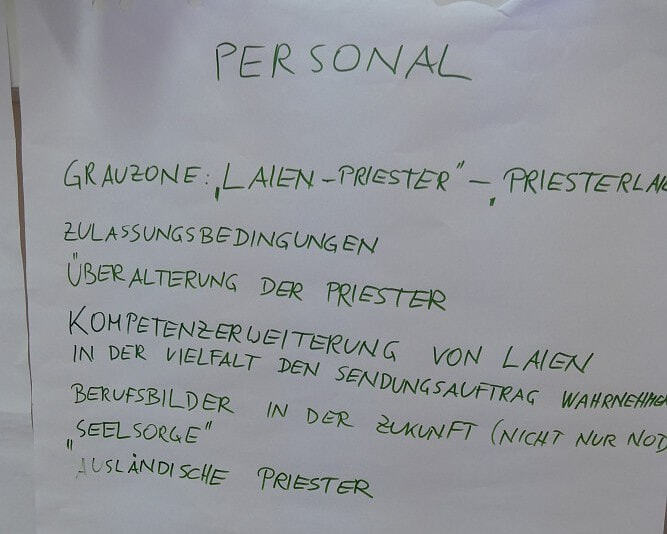 PERSONAL
GRAUZONE: „LAIEN-PRIESTER" – „PRIESTERLAIE
ZULASSUNGSBEDINGUNGEN
ÜBERALTERUNG DER PRIESTER
KOMPETENZERWEITERUNG VON LAIEN
IN DER VIELFALT DEN SENDUNGSAUFTRAG WAHRNEHMEN
BERUFSBILDER IN DER ZUKUNFT (NICHT NUR NOD
"SEELSORGE"
AUSLÄNDISCHE PRIESTER